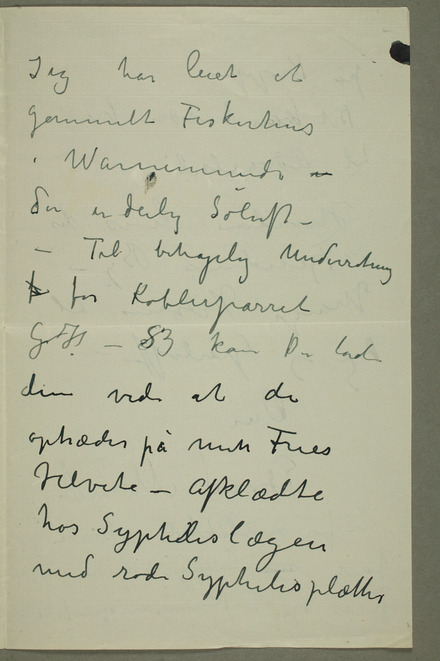 Jeg har leiet et
gammelt Fiskerhus
i Warnemünde –
der er deilig Søluft –
– Til behagelig Underretning
for Koblerparret
G – S3 kan De lade
dem vide at de
optræder på mit Fries
Helvete – Afklædte
hos Syphilislægen
med røde Syphilisplætter